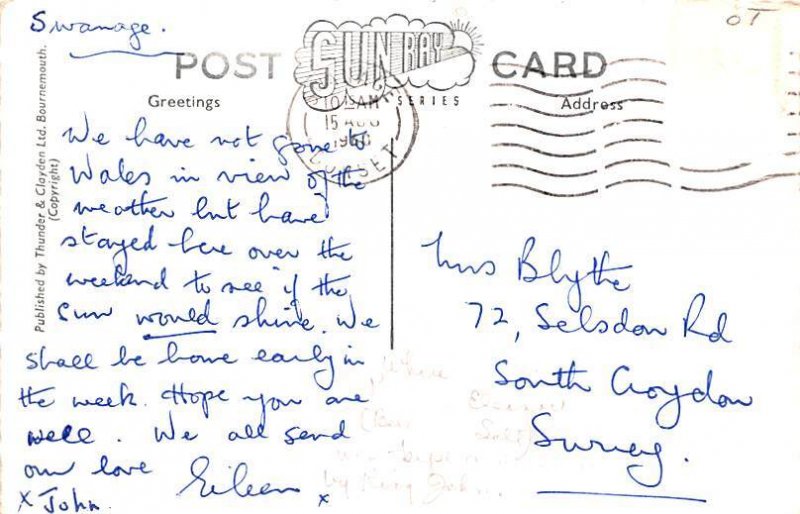 Swanage.
OT
POST CARD
SUN RAY
SERIES
Greetings
Address
Published by Thunder & Clayden Ltd. Bournemouth.
(Copyright)
15 AUG
DORSET
We have not gone to
Wales in view of the
weather but have
stayed here over the
weekend to see if the
sun would shine. We
shall be home early in
the week. Hope you are
well. We all send
our love Eileen x
x John.
Mrs Blythe
72, Selsdon Rd
South Croydon
Surrey.
by King John